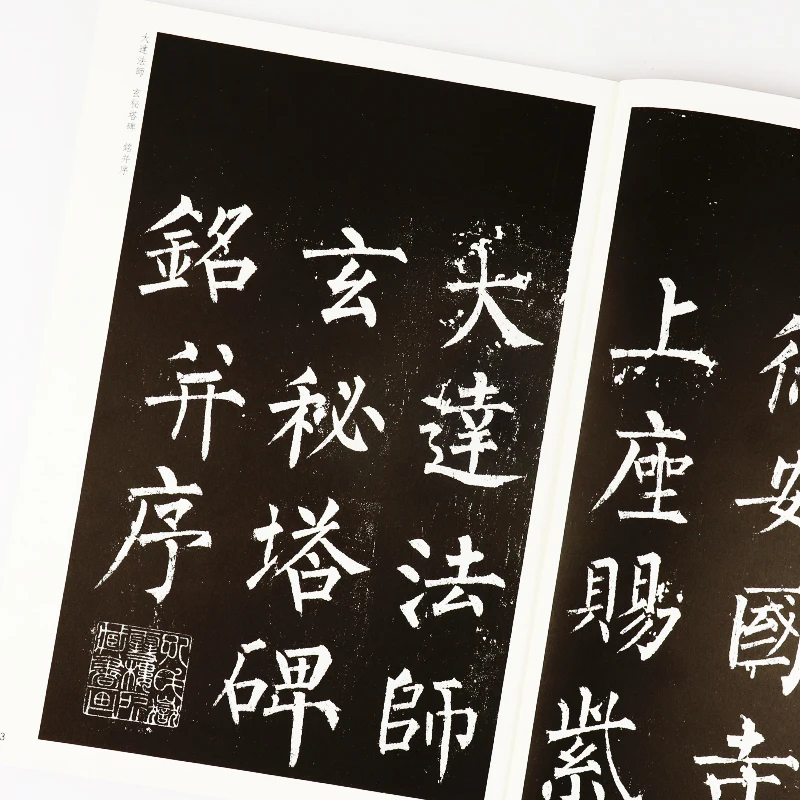 安國寺
上座賜紫
大達法師
玄秘塔碑
銘并序
大達法師 玄秘塔碑 銘并序
3